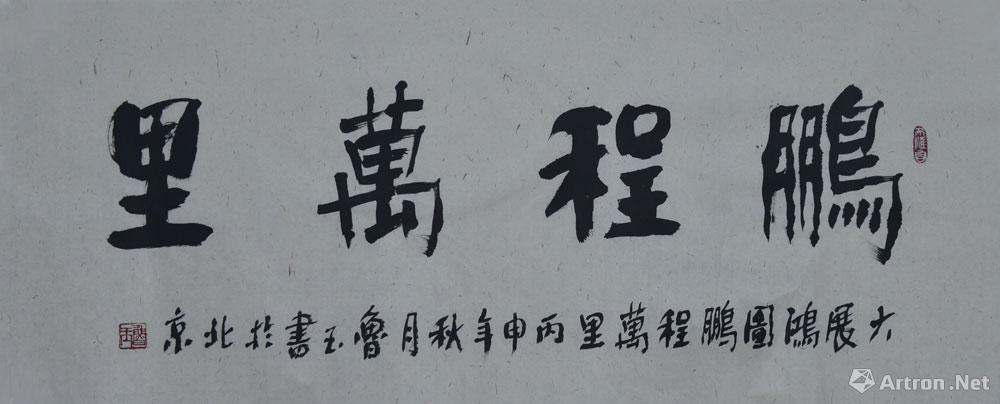 鵬程萬里
大展鴻圖鵬程萬里丙申年秋月魯玉書於北京
Artron.Net